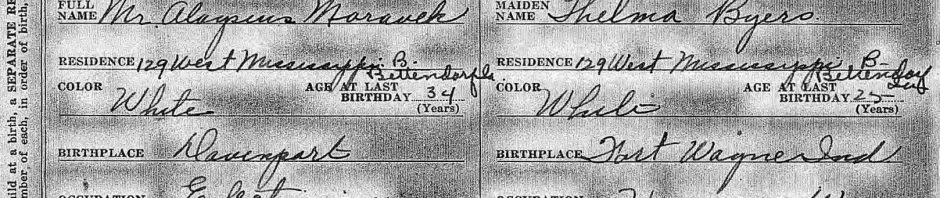 FULL NAME Mr. Aloysius Moravek
MAIDEN NAME Thelma Byers.
RESIDENCE 129 West Mississippi. B.
Bettendorf Ia.
RESIDENCE 129 West Mississippi B-
Bettendorf
COLOR White AGE AT LAST BIRTHDAY 34 (Years)
COLOR White AGE AT LAST BIRTHDAY 25 (Years)
BIRTHPLACE Davenport
BIRTHPLACE Fort Wayne Ind
OCCUPATION
OCCUPATION
ild at a birth, a SEPARATE RE
mber of each, in order of birth,